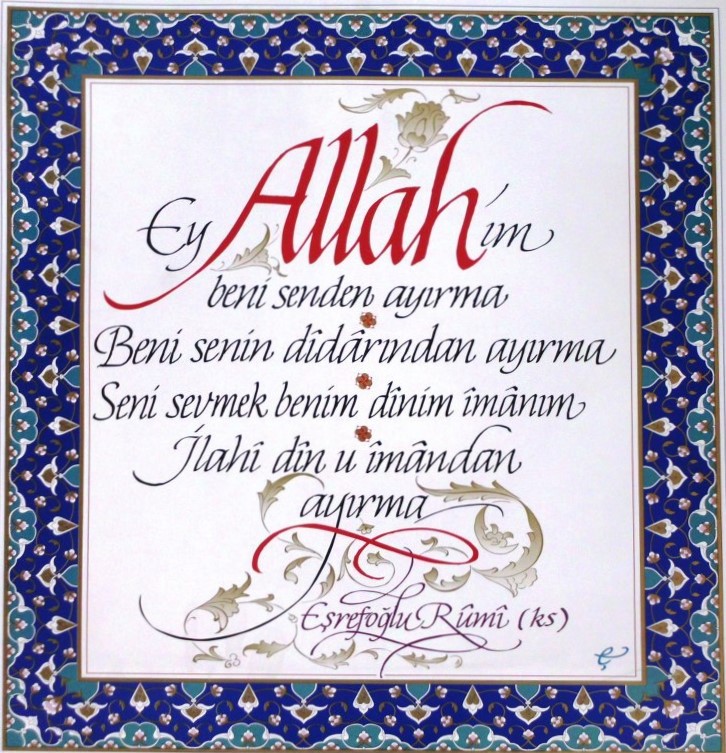 Ey Allah'ım
beni senden ayırma
Beni senin dîdârından ayırma
Seni sevmek benim dînim îmânım
İlahî dîn u îmândan
ayırma
Eşrefoğlu Rûmî (ks)